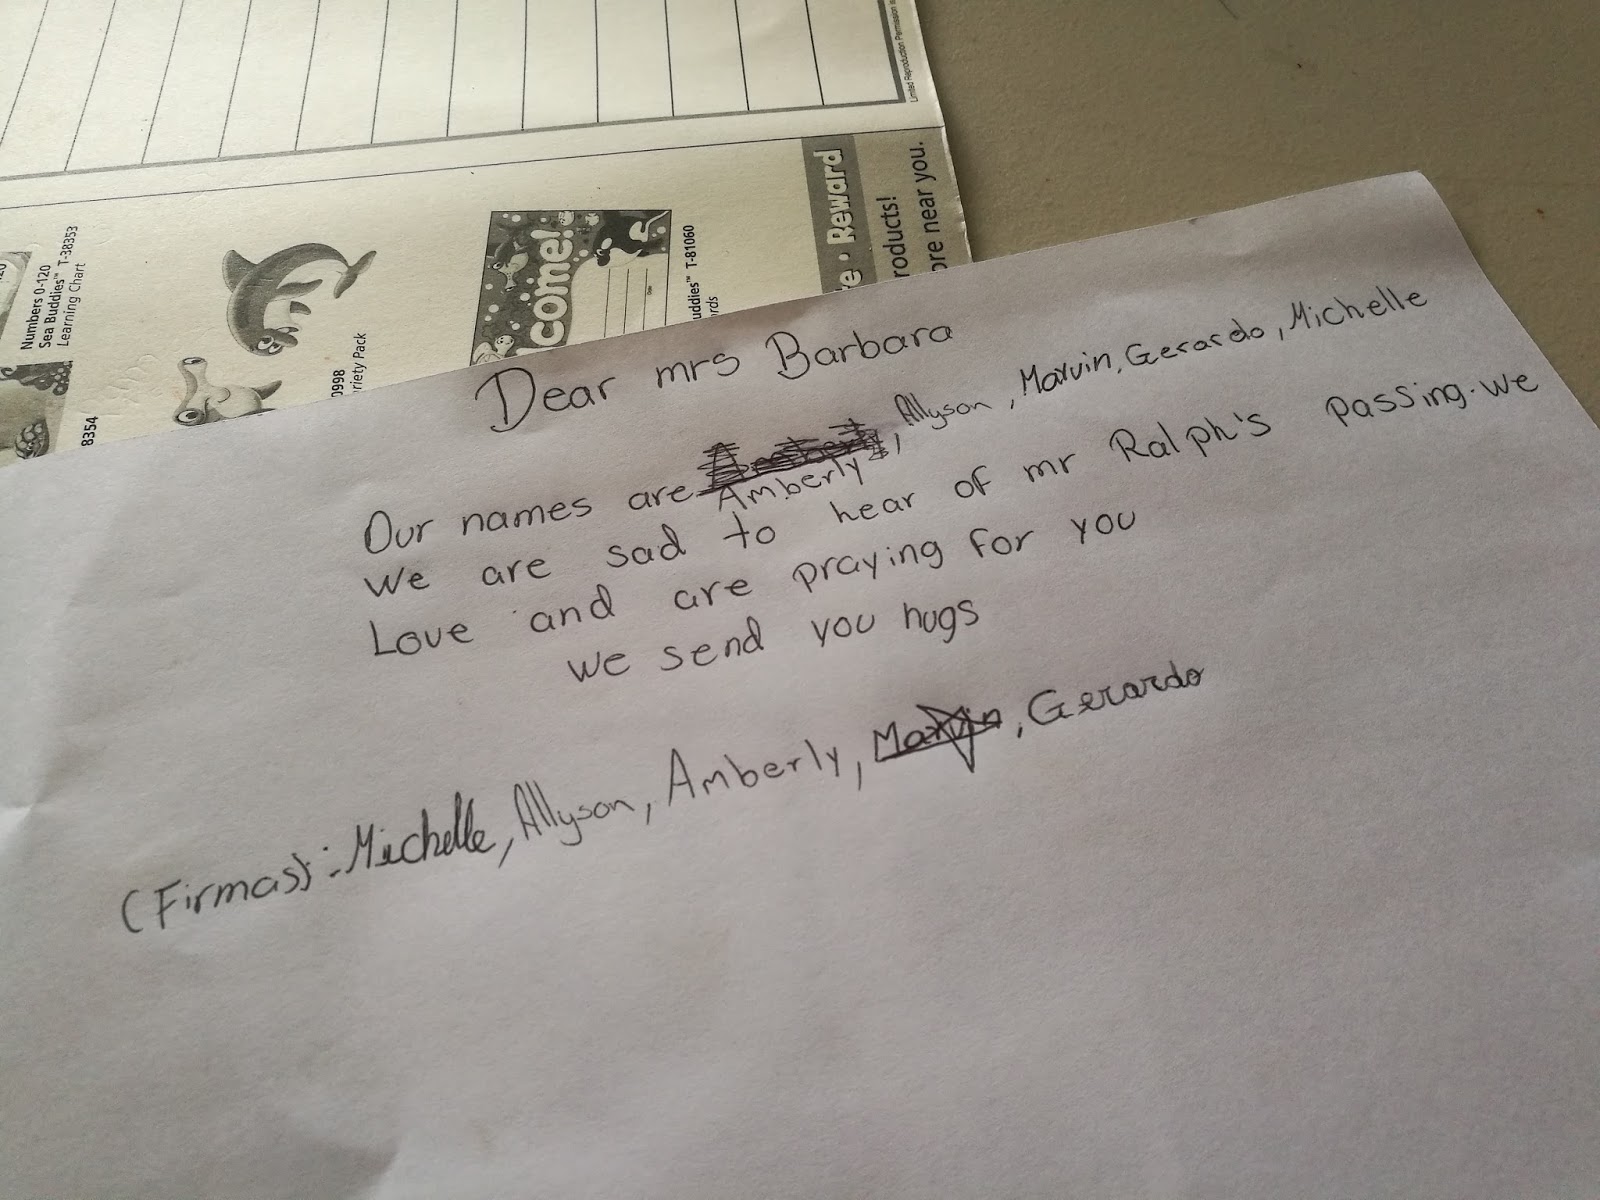 Limited Reproduction Permission
Numbers 0-120
Sea Buddies™ T-38353
Learning Chart
8354
0998
riety Pack
come!
uddies™ T-81060
rds
e • Reward
roducts!
ore near you.
Dear mrs Barbara
Our names are Amberly, Allyson, Marvin, Gerardo, Michelle
We are sad to hear of mr Ralph's passing. We
Love and are praying for you
We send you hugs
(Firmas): Michelle, Allyson, Amberly, Marvin, Gerardo